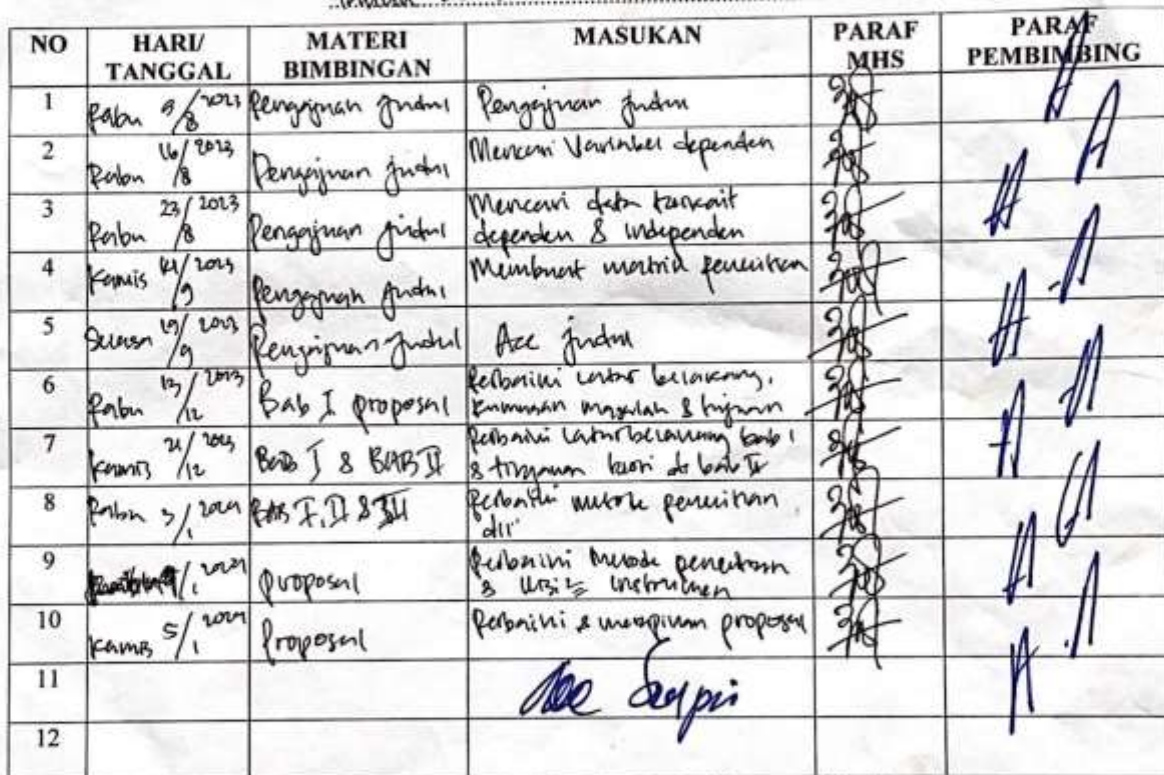 NO HARI/ TANGGAL MATERI BIMBINGAN MASUKAN PARAF MHS PARAF PEMBIMBING
1 Rabu 9/8 2023 Pengajuan Judul Pengajuan Judul
2 Rabu 16/8 2023 Pengajuan Judul Mencari Variabel dependen
3 Rabu 23/8 2023 Pengajuan Judul Mencari data terkait
dependen & independen
4 Kamis 14/9 2023 Pengajuan Judul Membuat matrik penelitian
5 Selasa 19/9 2023 Pengajuan Judul Acc Judul
6 Rabu 13/12 2023 Bab I proposal Perbaiki latar belakang,
rumusan masalah & tujuan
7 Kamis 21/12 2023 BAB I & BAB II Perbaiki latar belakang bab 1
& tinjauan teori di bab II
8 Rabu 3/1 2024 BAB I, II & III Perbaiki metode penelitian
dll
9 /1 2024 proposal Perbaiki Metode penelitian
& instrumen
10 Kamis 5/1 2024 Proposal Perbaiki & proposal
11 Acc
12